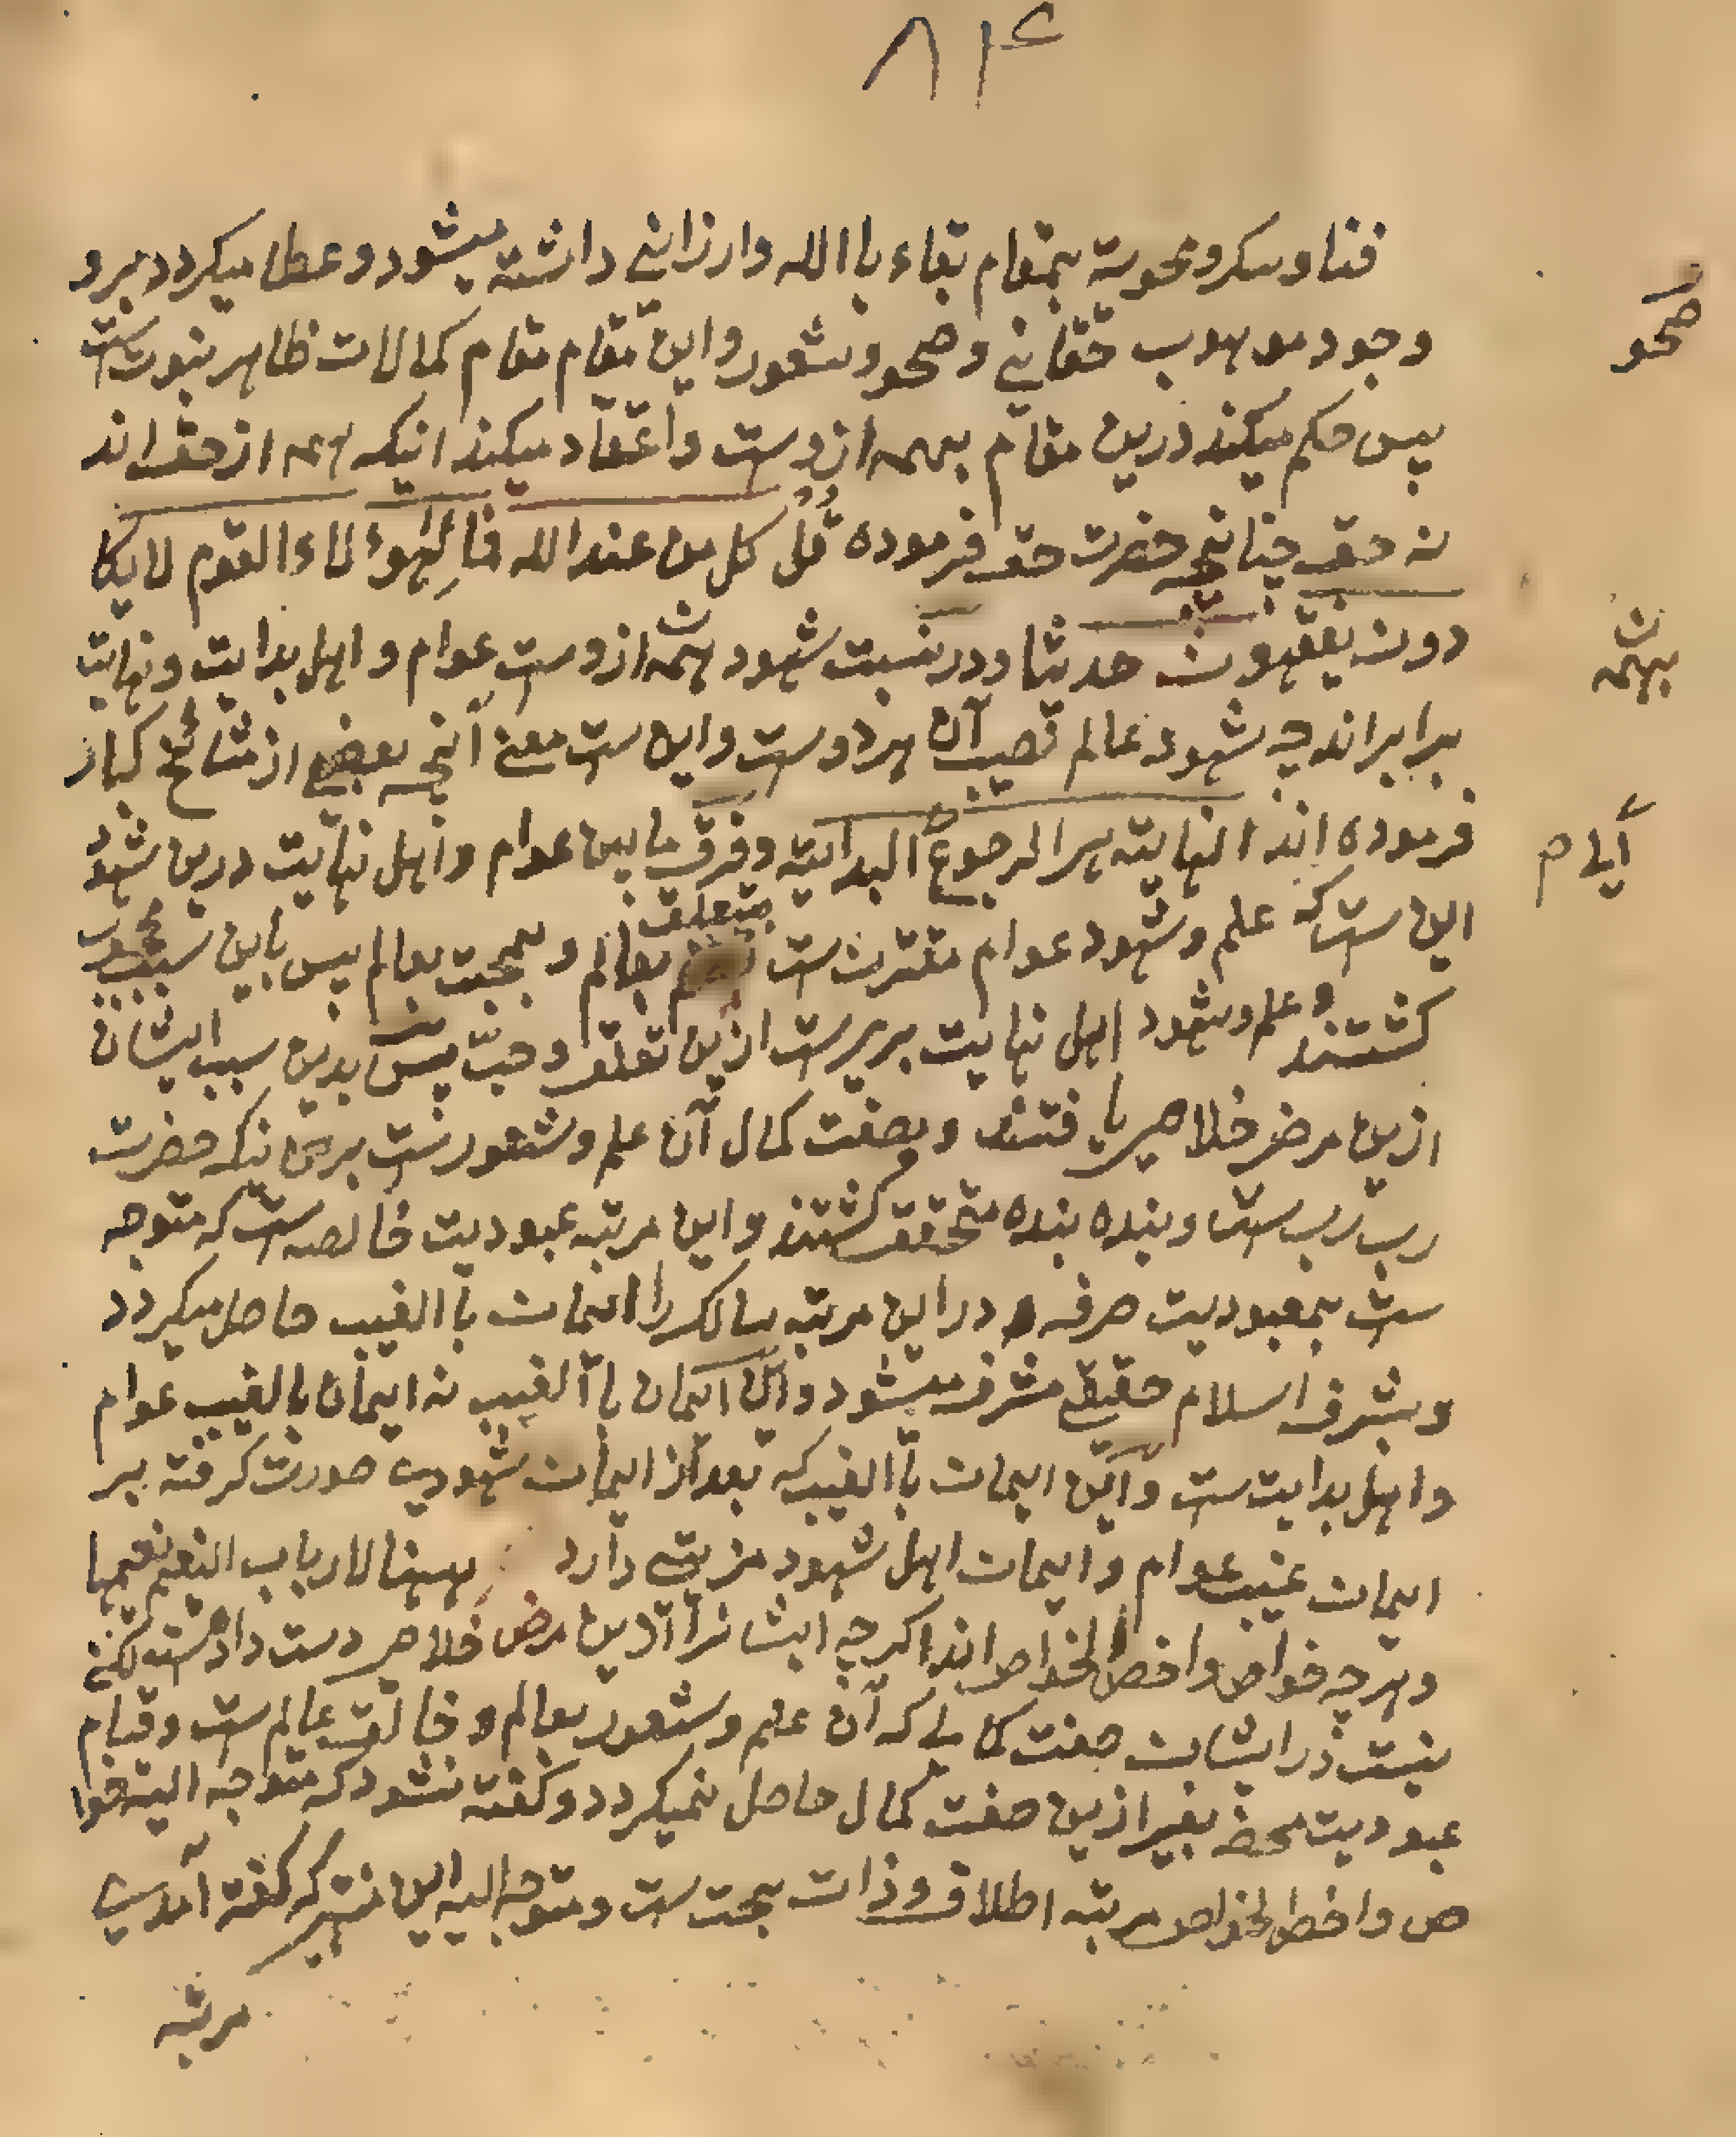 ۸۱۴
فنا و سکر و محویة بمقام بقاء باالله وارزانی داشته میشود و عطا میکردد برو
وجود موهوب حقانی و صحو و شعور و این مقام مقام کمالات ظاهر نبوت ست
پس حکم میکند درین مقام بهمه ازوست و اعتقاد میکند اینکه همه از حق اند
نه حق چنانچه حضرت حق فرموده قل کل من عند الله فمالهؤلاء القوم لا یکا
دون یفقهون حدیثا و در نسبت شهود همه ازوست عوام و اهل بدایت و نهایت
برابر اند چه شهود عالم نصیب آن هر دوست و این ست معنی آنچه بعضی از مشائخ کبار
فرموده اند النهایته هرا الرجوع البدایته و فرق مابین عوام و اهل نهایت درین شهود
این ست که علم و شهود عوام مقترن ست متعلق بعالم و بمحبت بعالم پس باین سبب محجوب
کشتند و علم و شهود اهل نهایت بریرست ازین تعلق و حبّ پس بدین سبب ایشان
ازین مرض خلاص یافتند و بصفت کمال آن علم و شعورست برین نیکه حضرت
رب رب ست و بنده بنده متحقق کشتند و این مرتبه عبودیت خالصه ست که متوجه
ست بمعبودیت صرفه و در این مرتبه سالک را ایمان باالغیب حاصل میکردد
و بشرف اسلام حقیقی مشرف میشود و این ایمان باالغیب نه ایمان بالغیب عوام
و اهل بدایت ست و این ایمان باالغیب که بعد از ایمان شهودی صورت کرفته بر
ایمان غیب عوام و ایمان اهل شهود مزیتی دارد هنیئا لارباب النعیم نعیمها
و هرچه خواص و اخص الخواص اند اکرچه ایشانرا ازین مرض خلاص دست داده ست لکن
نیست در ایشان صفت کاملی که آن علم و شعور بعالم و خالق عالم ست و قیام
عبودیت محضه بغیر ازین صفت کمال حاصل نمیکردد و کفته نشود که متوجه الیه خوا
ص و اخص الخواص مرتبه اطلاق و ذات بحت ست و متوجه الیه این منتهی که کفته آمد
مرتبه
صحو
بهمه